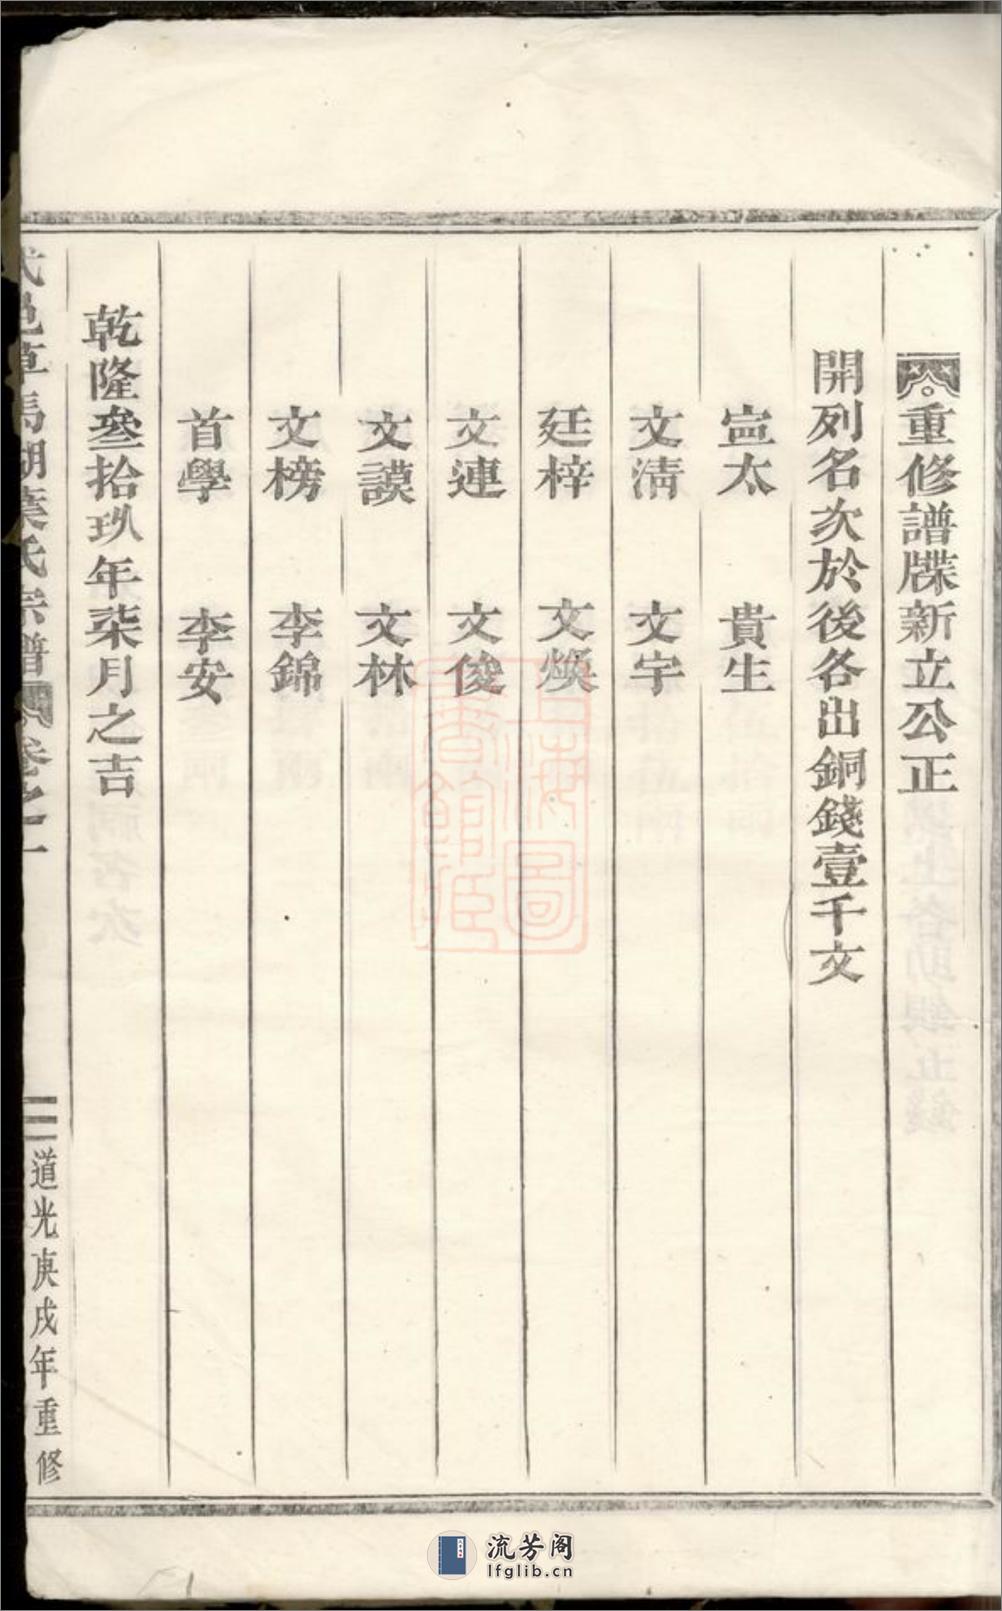 重修譜牒新立公正
開列名次於後各出銅錢壹千文
宣太 貴生
文清 文宇
廷梓 文煥
文連 文俊
文謨 文林
文榜 李錦
首學 李安
乾隆叄拾玖年柒月之吉
邑草馬湖葉氏宗譜 卷之一
三 道光庚戌年重修
上海圖書館藏
流芳阁
lfglib.cn